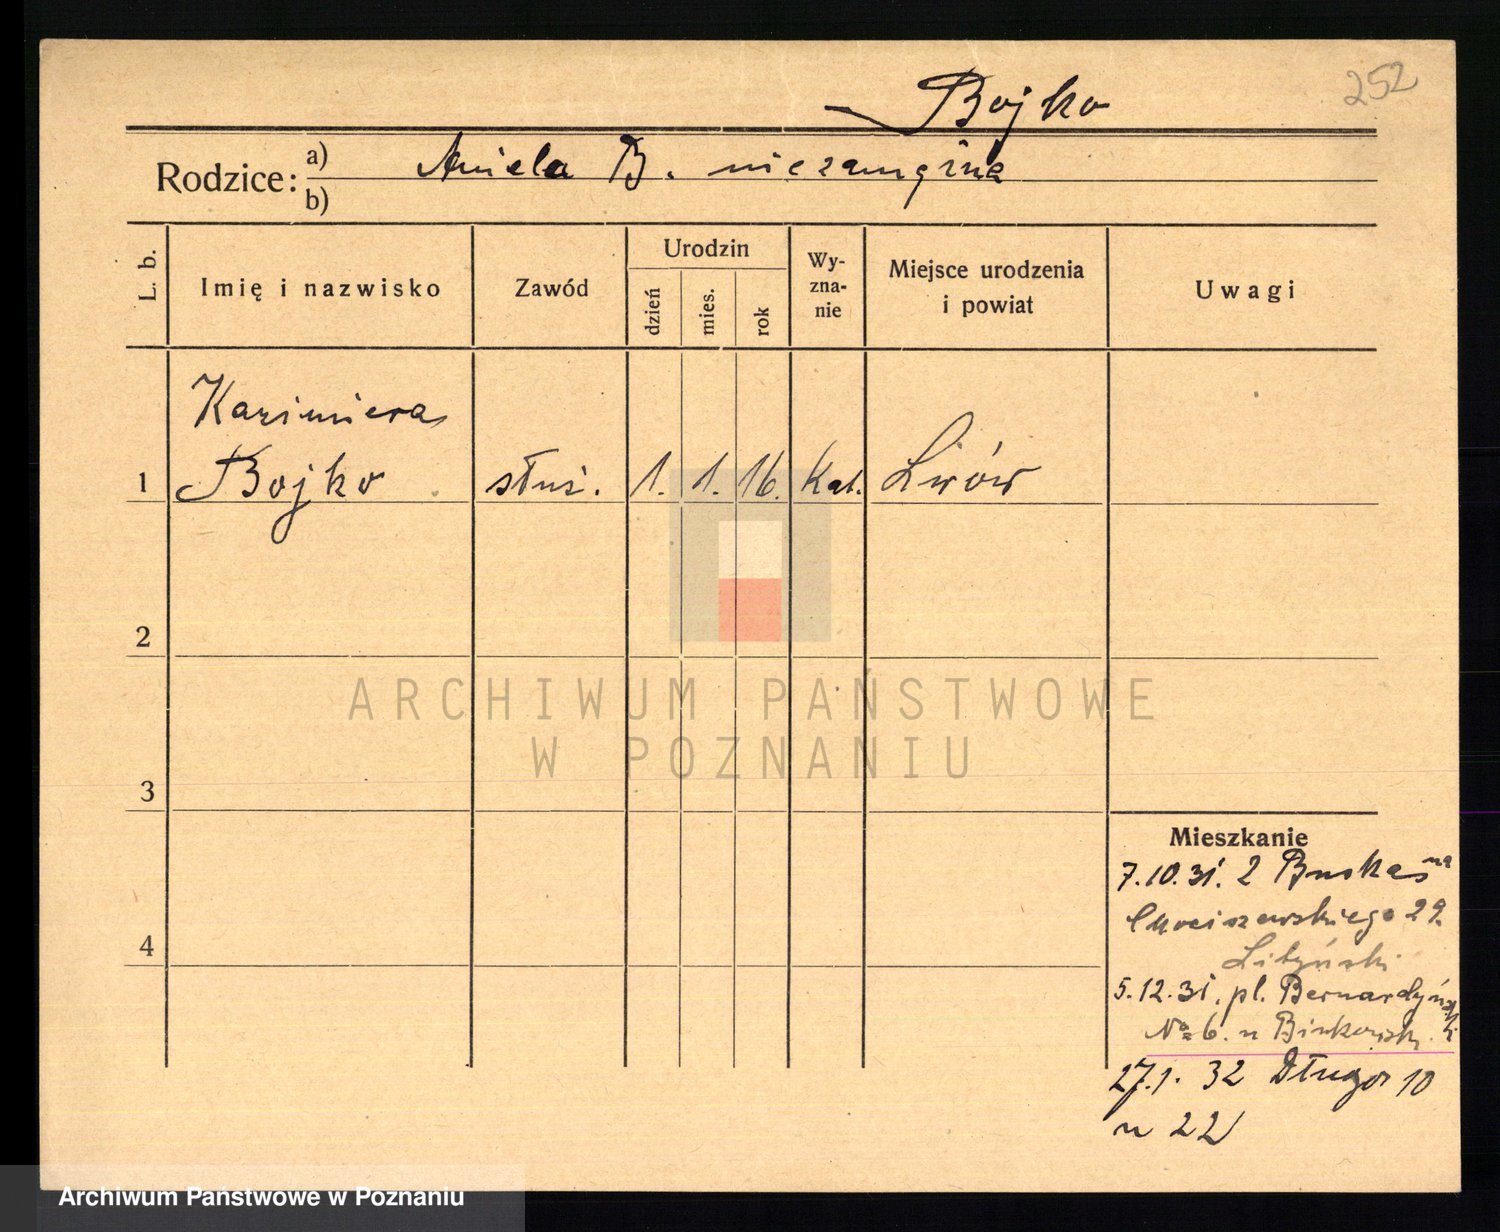 252
Bojko
Rodzice: a) Aniela B. niezamężna
b)
L. b.
Imię i nazwisko
Zawód
Urodzin
dzień
mies.
rok
Wy-
zna-
nie
Miejsce urodzenia
i powiat
Uwagi
Kazimiera
1 Bojko służ. 1. 1. 16. Kat. Lwów
2
3
4
ARCHIWUM PAŃSTWOWE
W POZNANIU
Mieszkanie
7.10.31. 2
29.
5.12.31. pl. Bernardyński
No 6. u
27.1. 32 Długa 10
u 22
Archiwum Państwowe w Poznaniu